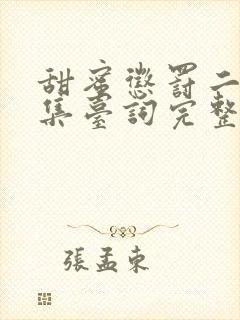 甜蜜懲罰二
集臺詞完整
張孟東